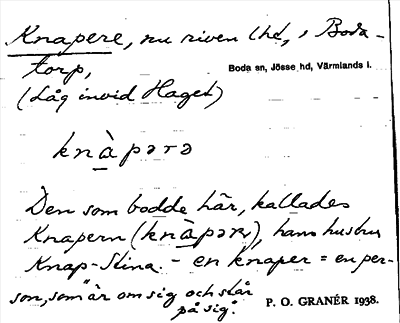 Knapere, nu riven lht, i Boda-
torp,
Boda sn, Jösse hd, Värmlands l.
(Låg invid Haget)
knàpərə
Den som bodde här, kallades
Knapern (knàpərn), hans hustru
Knap-Stina. - en knaper = en per-
son, som "är om sig och står
på sig".
P. O. GRANÉR 1938.